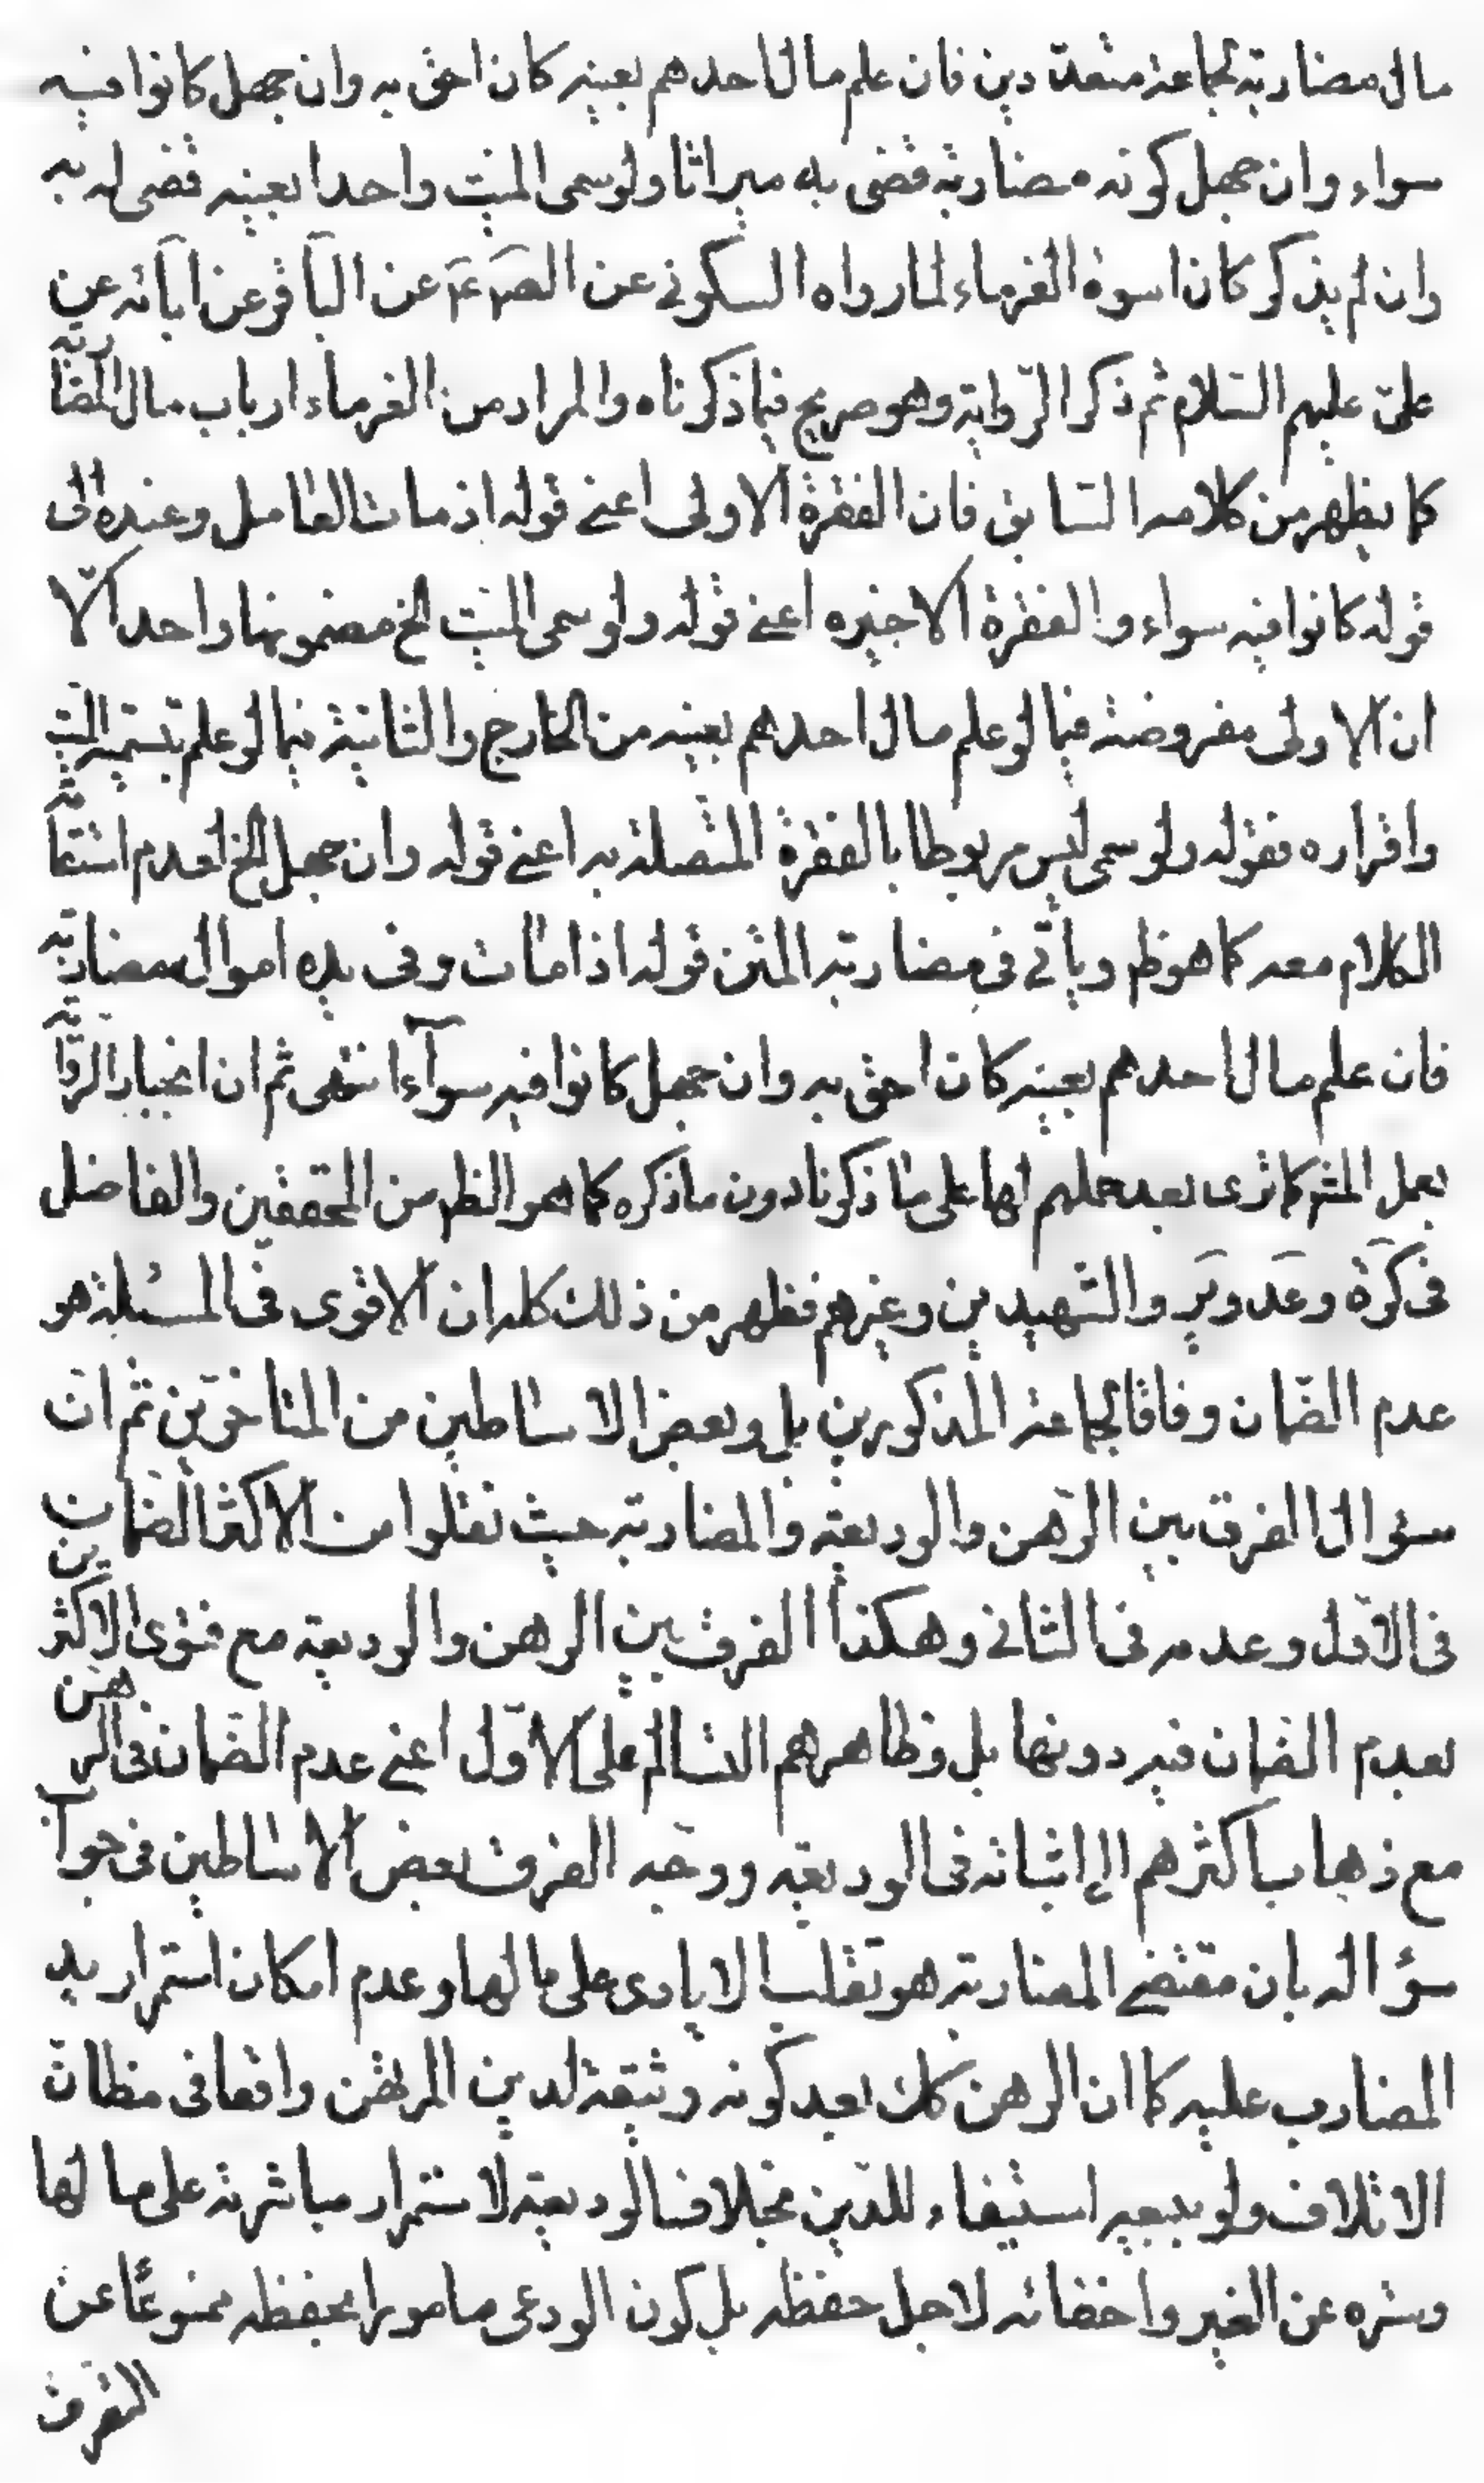 مال مضاربة لجماعة متعددين فان علم مال احدهم بعينه كان احق به وان جهل كانوا فيه
سواء وان جهل كونه مضاربة قضى به ميراثا ولو سمى الميت واحدا بعينه قضى له به
وان لم يذكر كان اسوة الغرماء لما رواه السكونى عن الص ع عن الباقر عن ابائه عن
علىّ عليهم السّلام ثم ذكر الرّواية وهو صريح فيما ذكرناه والمراد من الغرماء ارباب مال المضاربة
كما يظهر من كلامه السّابق فان الفقرة الاولى اعنى قوله اذ مات العامل وعنده الى
قوله كانوا فيه سواء والفقرة الاخيره اعنى قوله ولو سمى الميت الخ مضمونها واحد الّا
ان الاولى مفروضة فيما لو علم مال احدهم بعينه من الخارج والثانية فيما لو علم بتسمية الميت
واقراره فقوله ولو سمى ليس مربوطا بالفقرة المتصلة به اعنى قوله وان جهل الخ لعدم استقامة
الكلام معه كما هو ظ ويأتى فى مضاربة المتن قوله اذا مات وفى يده اموال مضاربة
فان علم مال احدهم بعينه كان احق به وان جهل كانوا فيه سوآءا انتهى ثم ان انجبار الرّواية
بعمل المشهر كما ترى بعد حملهم لها على ما ذكرنا دون ما ذكره كما هو الظ من المحققين والفاضل
فى كرة وعد وير والشّهيدين وغيرهم فظهر من ذلك كله ان الاقوى فى المسئلة هو
عدم الضّمان وفاقا لجماعة المذكورين بل وبعض الاساطين من المتاخرّين ثم انّ
سؤال الفرق بين الرّهن والوديعة والمضاربة حيث نقلوا من الاكثر الضمان
فى الاوّل وعدمه فى الثانى وهكذا الفرق بين الرهن والوديعة مع فتوى الاكثرين
بعدم الضمان فيه دونها بل وظاهرهم التسالم على الاوّل اعنى عدم الضّمان فى الرهن
مع ذهاب اكثرهم الى اثباته فى الوديعة ووجّه الفرق بعض الاساطين فى جواب
سؤاله بان مقتضى المضاربة هو تقلب الايادى على مالها وعدم امكان استمرار يد
المضارب عليه كما ان الرهن كك بعد كونه وثيقة لدين المرتهن واقعا فى مظانّ
الاتلاف ولو ببيعه استيفاء للدّين بخلاف الوديعة لاستمرار مباشرته على مالها
وستره عن الغير واخفائه لاجل حفظه بل كون الودعى مامورا بحفظه ممنوعًا عن
التصرف